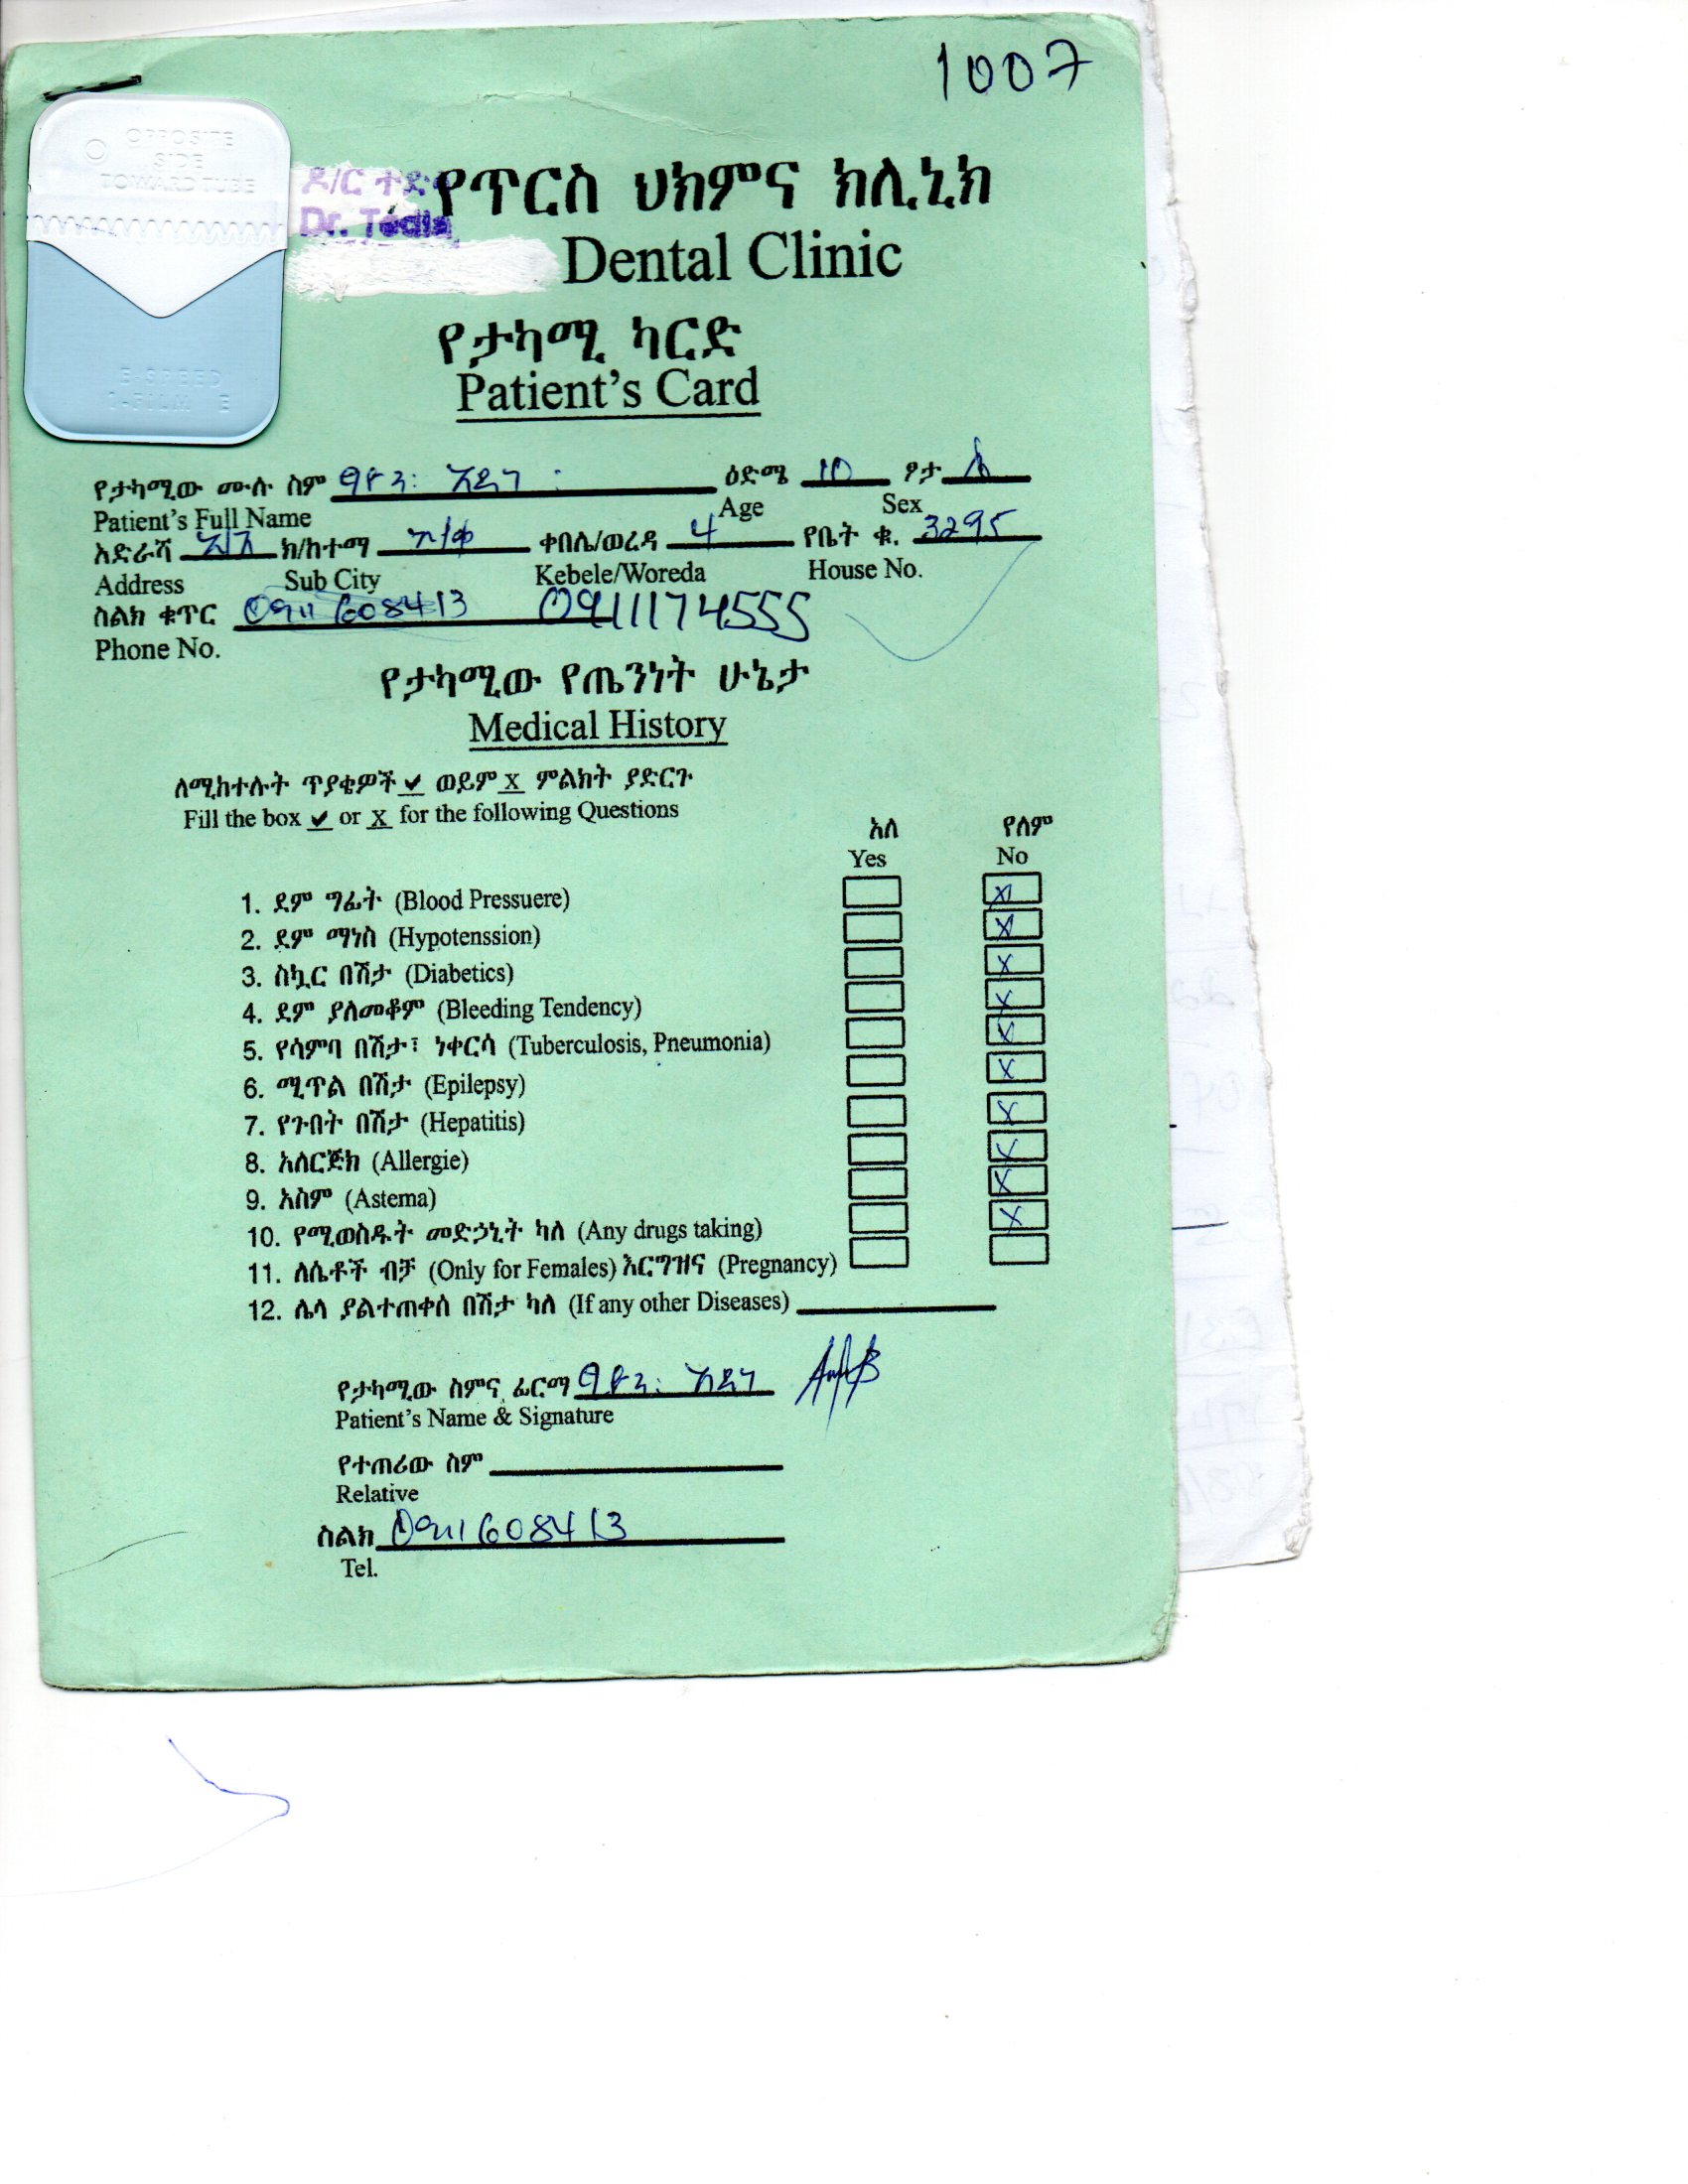 1007
OPPOSITE
SIDE
TOWARD TUBE
E-SPEED
ዶ/ር ተድላ የጥርስ ህክምና ክሊኒክ
Dr. Tedla
Dental Clinic
የታካሚ ካርድ
Patient's Card
የታካሚው ሙሉ ስም ዕድሜ 10 ፆታ
Patient's Full Name Age Sex
አድራሻ አ/አ ክ/ከተማ ቀበሌ/ወረዳ 4 የቤት ቁ. 3295
Address Sub City Kebele/Woreda House No.
ስልክ ቁጥር 0911608413 0911174555
Phone No.
የታካሚው የጤንነት ሁኔታ
Medical History
ለሚከተሉት ጥያቄዎች ✔ ወይም X ምልክት ያድርጉ
Fill the box ✔ or X for the following Questions
አለ የለም
Yes No
1. ደም ግፊት (Blood Pressuere) X
2. ደም ማነስ (Hypotenssion) X
3. ስኳር በሽታ (Diabetics) X
4. ደም ያለመቆም (Bleeding Tendency) X
5. የሳምባ በሽታ፣ ነቀርሳ (Tuberculosis, Pneumonia) X
6. ሚጥል በሽታ (Epilepsy) X
7. የጉበት በሽታ (Hepatitis) X
8. አለርጅክ (Allergie) X
9. አስም (Astema) X
10. የሚወስዱት መድኃኒት ካለ (Any drugs taking) X
11. ለሴቶች ብቻ (Only for Females) እርግዝና (Pregnancy)
12. ሌላ ያልተጠቀሰ በሽታ ካለ (If any other Diseases)
የታካሚው ስምና ፊርማ
Patient's Name & Signature
የተጠሪው ስም
Relative
ስልክ 0911608413
Tel.